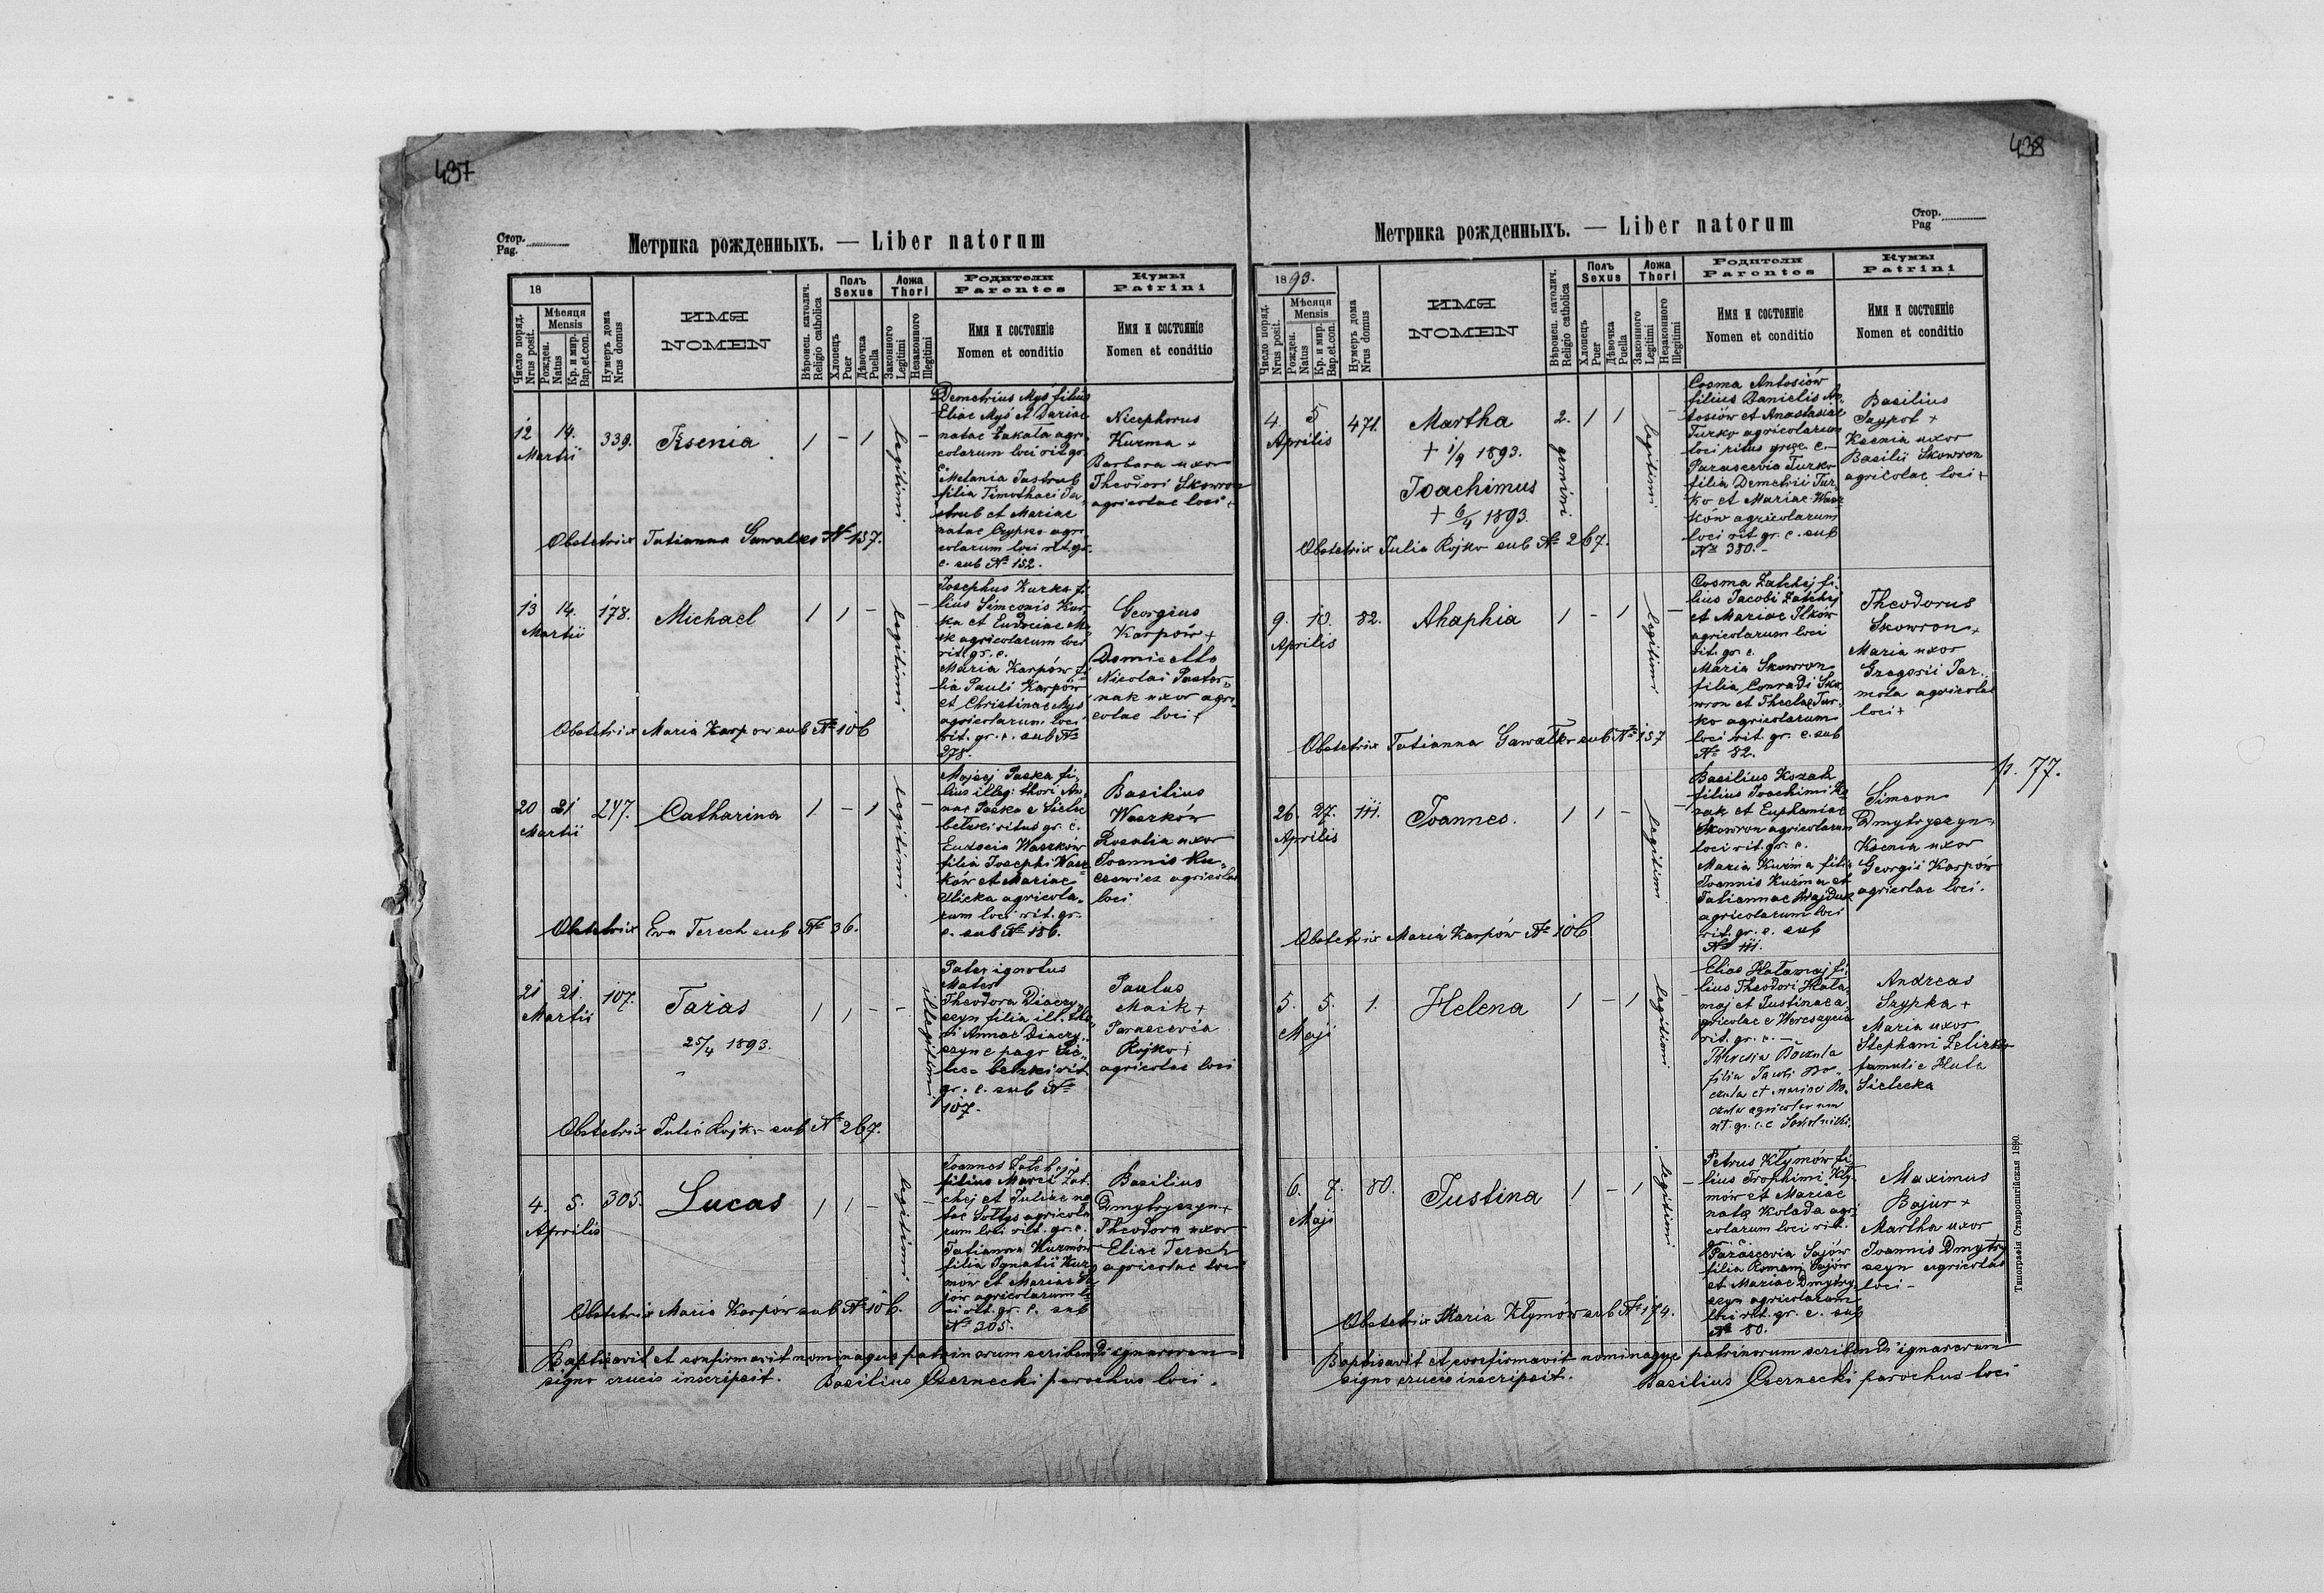 437
Стор.
Pag.
Метрика рожденныхъ. — Liber natorum
18
Число поряд.
Nrus posit.
Мѣсяця
Mensis
Рожден.
Natus
Кр. и мир.
Bap. et con.
Нумеръ дома
Nrus domus
ИМЯ
NOMEN
Вѣроисп. католич.
Religio catholica
Полъ
Sexus
Хлопецъ
Puer
Дѣвочка
Puella
Ложа
Thori
Законного
Legitimi
Незаконного
Illegitimi
Родители
Parentes
Имя и состояніе
Nomen et conditio
Кумы
Patrini
Имя и состояніе
Nomen et conditio
12 14. 339. Ksenia 1 - 1 legitimi -
Martii
Demetrius Myś filius
Eliae Myś et Dariae
natae Zakała agri
colarum loci rit. gr.
c.
Melania Jastrub
filia Timothaei Ja
strub et Mariae
natae Cypko agri
colarum loci rit. gr.
c. sub № 152.
Nicephorus
Kuzma +
Barbara uxor
Theodori Skowron
agricolae loci +
Obstetrix Tatianna Gawalko № 137.
13 14. 178. Michael 1 1 - legitimi -
Martii
Josephus Kurka fi
lius Simeonis Kur
ka et Eudociae
agricolarum loci
rit. gr. c.
Maria Karpów fi
lia Pauli Karpów
et Christinae Myś
agricolarum loci
rit. gr. c. sub №
178.
Georgius
Karpów +
Nicolai Paster-
nak uxor agri
colae loci +
Obstetrix Maria Karpow sub № 106
20 21 247. Catharina 1 - 1 legitimi -
Martii
Mojsej Paska fi-
lius illeg: thori An-
nae Paska e Sielec
bełzki ritus gr. c.
Eudocia Waszków
filia Josephi Wasz-
ków et Mariae
agricola-
rum loci rit. gr.
c. sub № 186.
Basilius
Waszków
Rosalia uxor
Joannis
agricolae
loci
Obstetrix Ewa Terech sub № 36.
21 21. 107. Taras 1 1 - - illegitimi
Martii
25/4 1893.
Pater ignotus
Mater
Theodora Diaczy-
szyn filia ill. tho
ri Annae Diaczy-
szyn e pago Sie-
lec bełzki rit.
gr. c. sub №
107.
Paulus
Maik +
Parascevia
Rojko +
agricolae loci
Obstetrix Julia Rojko sub № 267.
4. 5. 305. Lucas 1 1 - legitimi -
Aprilis
Joannes Zatchej
filius Marci Zat-
chej et Juliae na
tae Sołtys agricola
rum loci rit. gr. c.
Tatianna Kuzmów
filia Ignatii Kuz
mów et Mariae Sa
jów agricolarum lo
ci rit. gr. c. sub
№ 305.
Basilius
Dmytryszyn +
Theodora uxor
Eliae Terech
agricolae loci
Obstetrix Maria Karpów sub № 106.
Baptisavit et confirmavit nominaque patrinorum scribendi ignarorum
signo crucis inscripsit. Basilius Czernecki parochus loci.
438
Стор.
Pag
Метрика рожденныхъ. — Liber natorum
1893.
Число поряд.
Nrus posit.
Мѣсяця
Mensis
Рожден.
Natus
Кр. и мир.
Bap. et con.
Нумеръ дома
Nrus domus
ИМЯ
NOMEN
Вѣроисп. католич.
Religio catholica
Полъ
Sexus
Хлопецъ
Puer
Дѣвочка
Puella
Ложа
Thori
Законного
Legitimi
Незаконного
Illegitimi
Родители
Parentes
Имя и состояніе
Nomen et conditio
Кумы
Patrini
Имя и состояніе
Nomen et conditio
4. 5 471. Martha 2. 1 1 legitimi -
Aprilis
+ 1/9 1893.
Joachimus
+ 6/4 1893.
gemini
Cosma Antosiów
filius Danielis An-
tosiów et Anastasiae
Turko agricolarum
loci ritus graec c.
Parascevia Turko
filia Demetrii Tur-
ko et Mariae Wasz
ków agricolarum
loci rit gr. c. sub
№ 380.
Basilius
+
Ksenia uxor
Basilii Skowron
agricolae loci +
Obstetrix Julia Rojko sub № 267.
9. 10. 82. Ahaphia 1 - 1 legitimi -
Aprilis
Cosma Zatchej fi-
lius Jacobi Zatchej
et Mariae Ilków
agricolarum loci
rit. gr. c.
Maria Skowron
filia Conradi Sko-
wron et Theclae Tur-
ko agricolarum
loci rit. gr. c. sub
№ 82.
Theodorus
Skowron +
Maria uxor
Gregorii Jar-
moła agricolae
loci +
Obstetrix Tatianna Gawalko sub № 137
26. 27. 111. Joannes. 1 1 - legitimi -
Aprilis
Basilius Kozak
filius Joachimi Ko
zak et Euphemiae
Skowron agricolarum
loci rit. gr. c.
Maria Kuzma filia
Joannis Kuzma et
Tatiannae Hajduk
agricolarum loci
rit. gr. c. sub
№ 111.
Simeon
Dmytryszyn +
Ksenia uxor
Georgii Karpów
agricolae loci.
p. 77.
Obstetrix Maria Karpów № 106.
5. 5. 1. Helena 1 - 1 legitimi -
Maji
Elias Hałamaj fi-
lius Theodori Hała-
maj et Justinae a-
gricolae e Wereszyca
rit. gr. c. -
Theresia Boczula
filia Jacobi Bo-
czula et Mariae Bo-
czula agricolarum
rit. gr. c. e
Andreas
Szypka +
Maria uxor
Stephani Zelizko
famuli e Huta
Sielecka
6. 7. 80. Justina 1 - 1 legitimi -
Maji
Petrus Kłymów fi-
lius Trophimi Kły-
mów et Mariae
nata Kolada agri
colarum loci rit.
gr. c.
Parascevia Sajów
filia Romani Sajów
et Mariae Dmytry
szyn agricolarum
loci rit. gr. c. sub
№ 80.
Maximus
Bajur +
Martha uxor
Joannis Dmytry
szyn agricolae
loci -
Obstetrix Maria Kłymów sub № 174.
Baptisavit et confirmavit nominaque patrinorum scribendi ignarorum
signo crucis inscripsit. Basilius Czernecki parochus loci
Типографія Ставропигійская 1890.